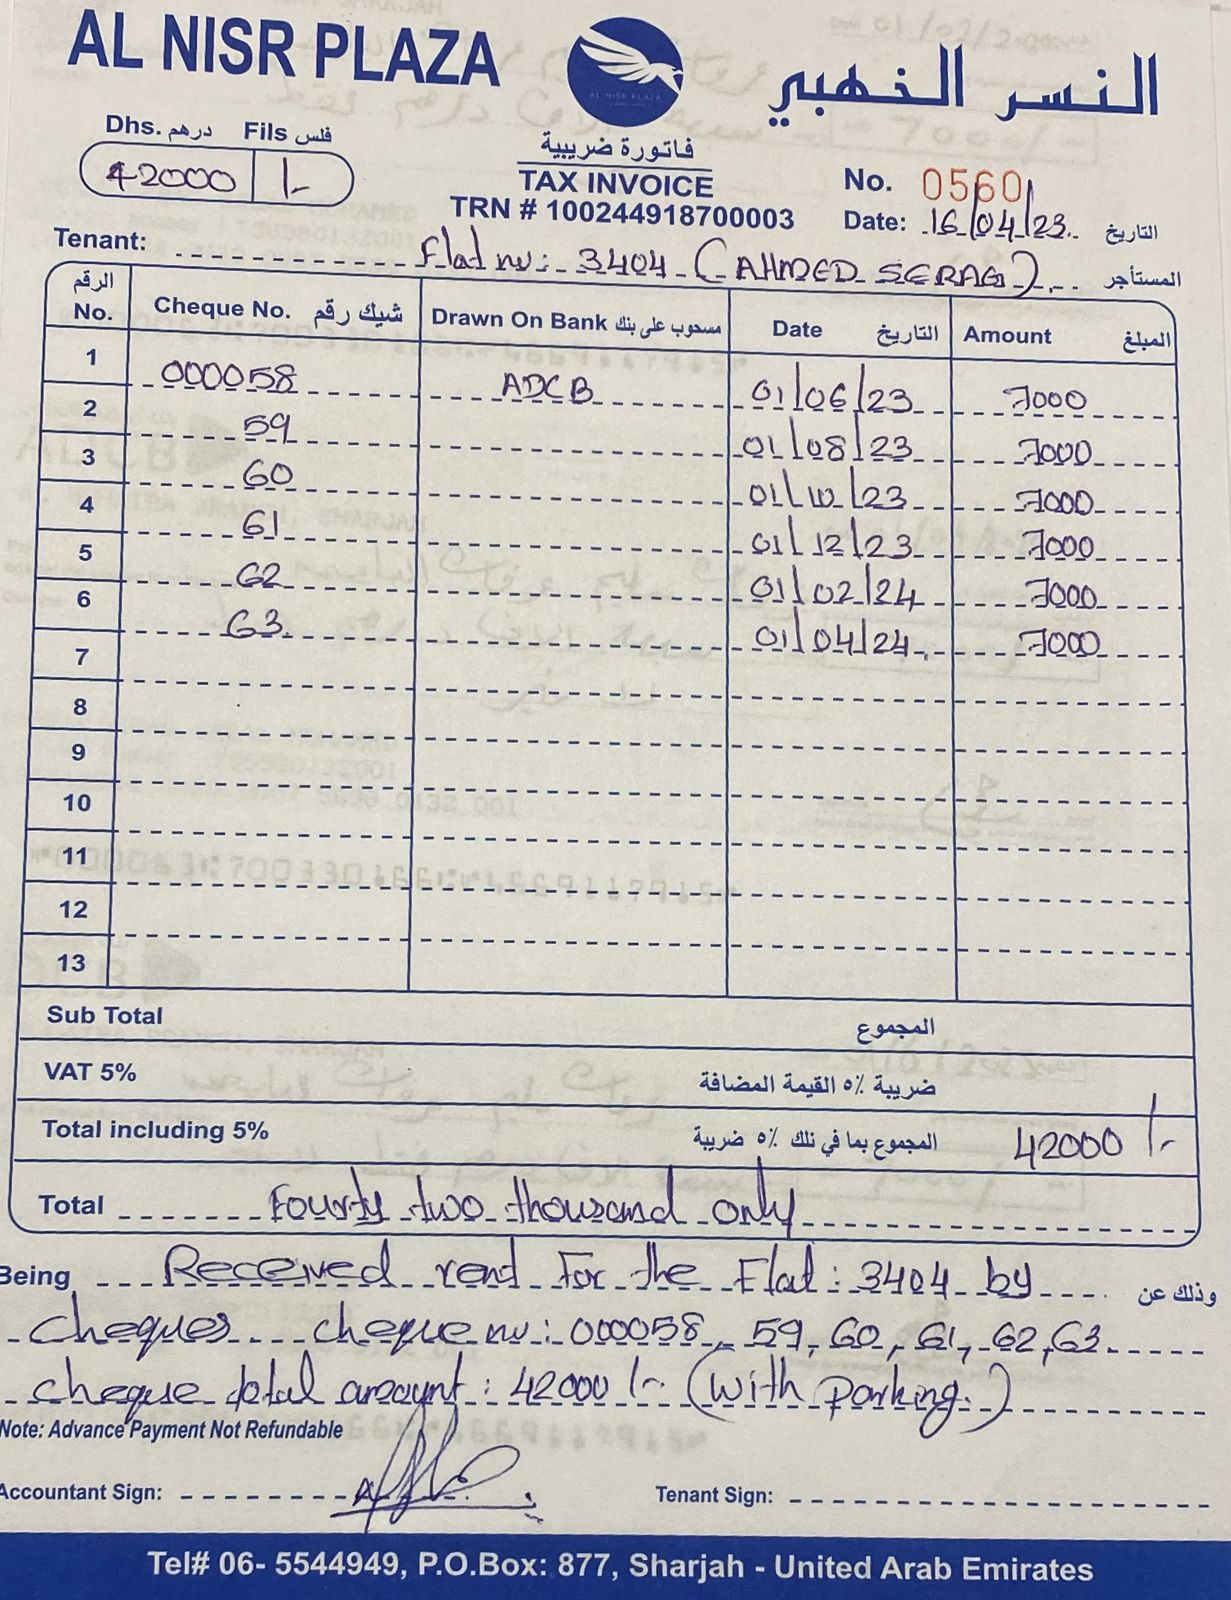 AL NISR PLAZA
AL NISR PLAZA
النسر الذهبي
Dhs. درهم Fils فلس
42000 /-
فاتورة ضريبية
TAX INVOICE
TRN # 100244918700003
No. 0560
Date: 16/04/23 التاريخ
Tenant: Flat no: 3404 (AHMED SERAG) المستأجر
الرقم No. Cheque No. شيك رقم Drawn On Bank مسحوب على بنك Date التاريخ Amount المبلغ
1 000058 ADCB 01/06/23 7000
2 59 01/08/23 7000
3 60 01/10/23 7000
4 61 01/12/23 7000
5 62 01/02/24 7000
6 63 01/04/24 7000
7
8
9
10
11
12
13
Sub Total المجموع
VAT 5% ضريبة ٥٪ القيمة المضافة
Total including 5% المجموع بما في ذلك ٥٪ ضريبة 42000 /-
Total Fourty two thousand only
Being Received rent For the Flat: 3404 by وذلك عن
cheques cheque no: 000058, 59, 60, 61, 62, 63.
cheque total amount: 42000 /- (with parking.)
Note: Advance Payment Not Refundable
Accountant Sign:
Tenant Sign:
Tel# 06- 5544949, P.O.Box: 877, Sharjah - United Arab Emirates